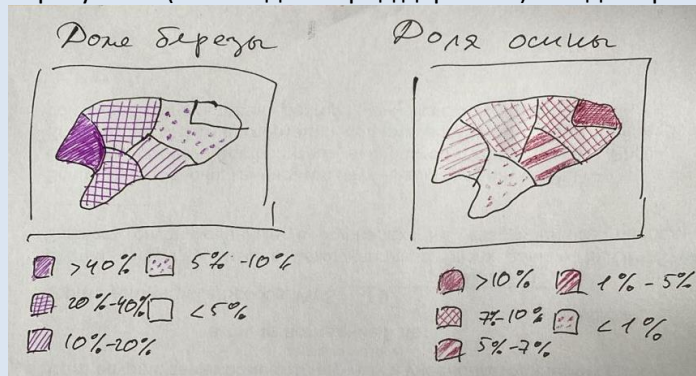 Доля березы
>40%
5% - 10%
20%-40%
<5%
10%-20%
Доля осины
>10%
1% - 5%
7%-10%
<1%
5%-7%